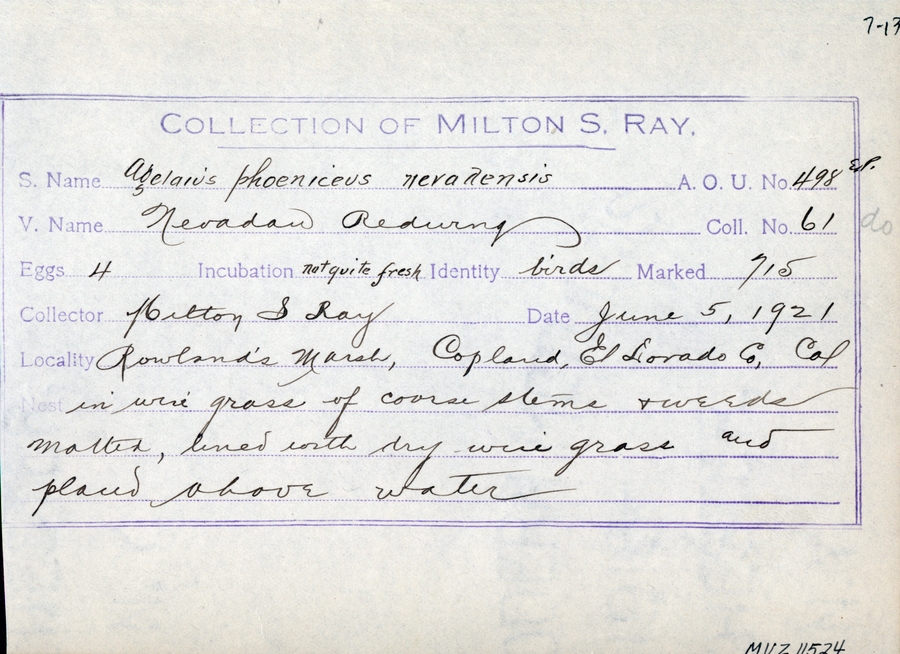 7-13
COLLECTION OF MILTON S. RAY.
S. Name Agelaius phoeniceus nevadensis A. O. U. No. 498
V. Name Nevadan Redwing Coll. No. 61
do
Eggs 4 Incubation not quite fresh Identity birds Marked 7/5
Collector Milton S Ray Date June 5, 1921
Locality Rowland's Marsh, Copland, El Dorado Co, Cal
Nest in wire grass of coarse stems & weeds
matted, lined with dry wire grass and
placed above water
MVZ 11524